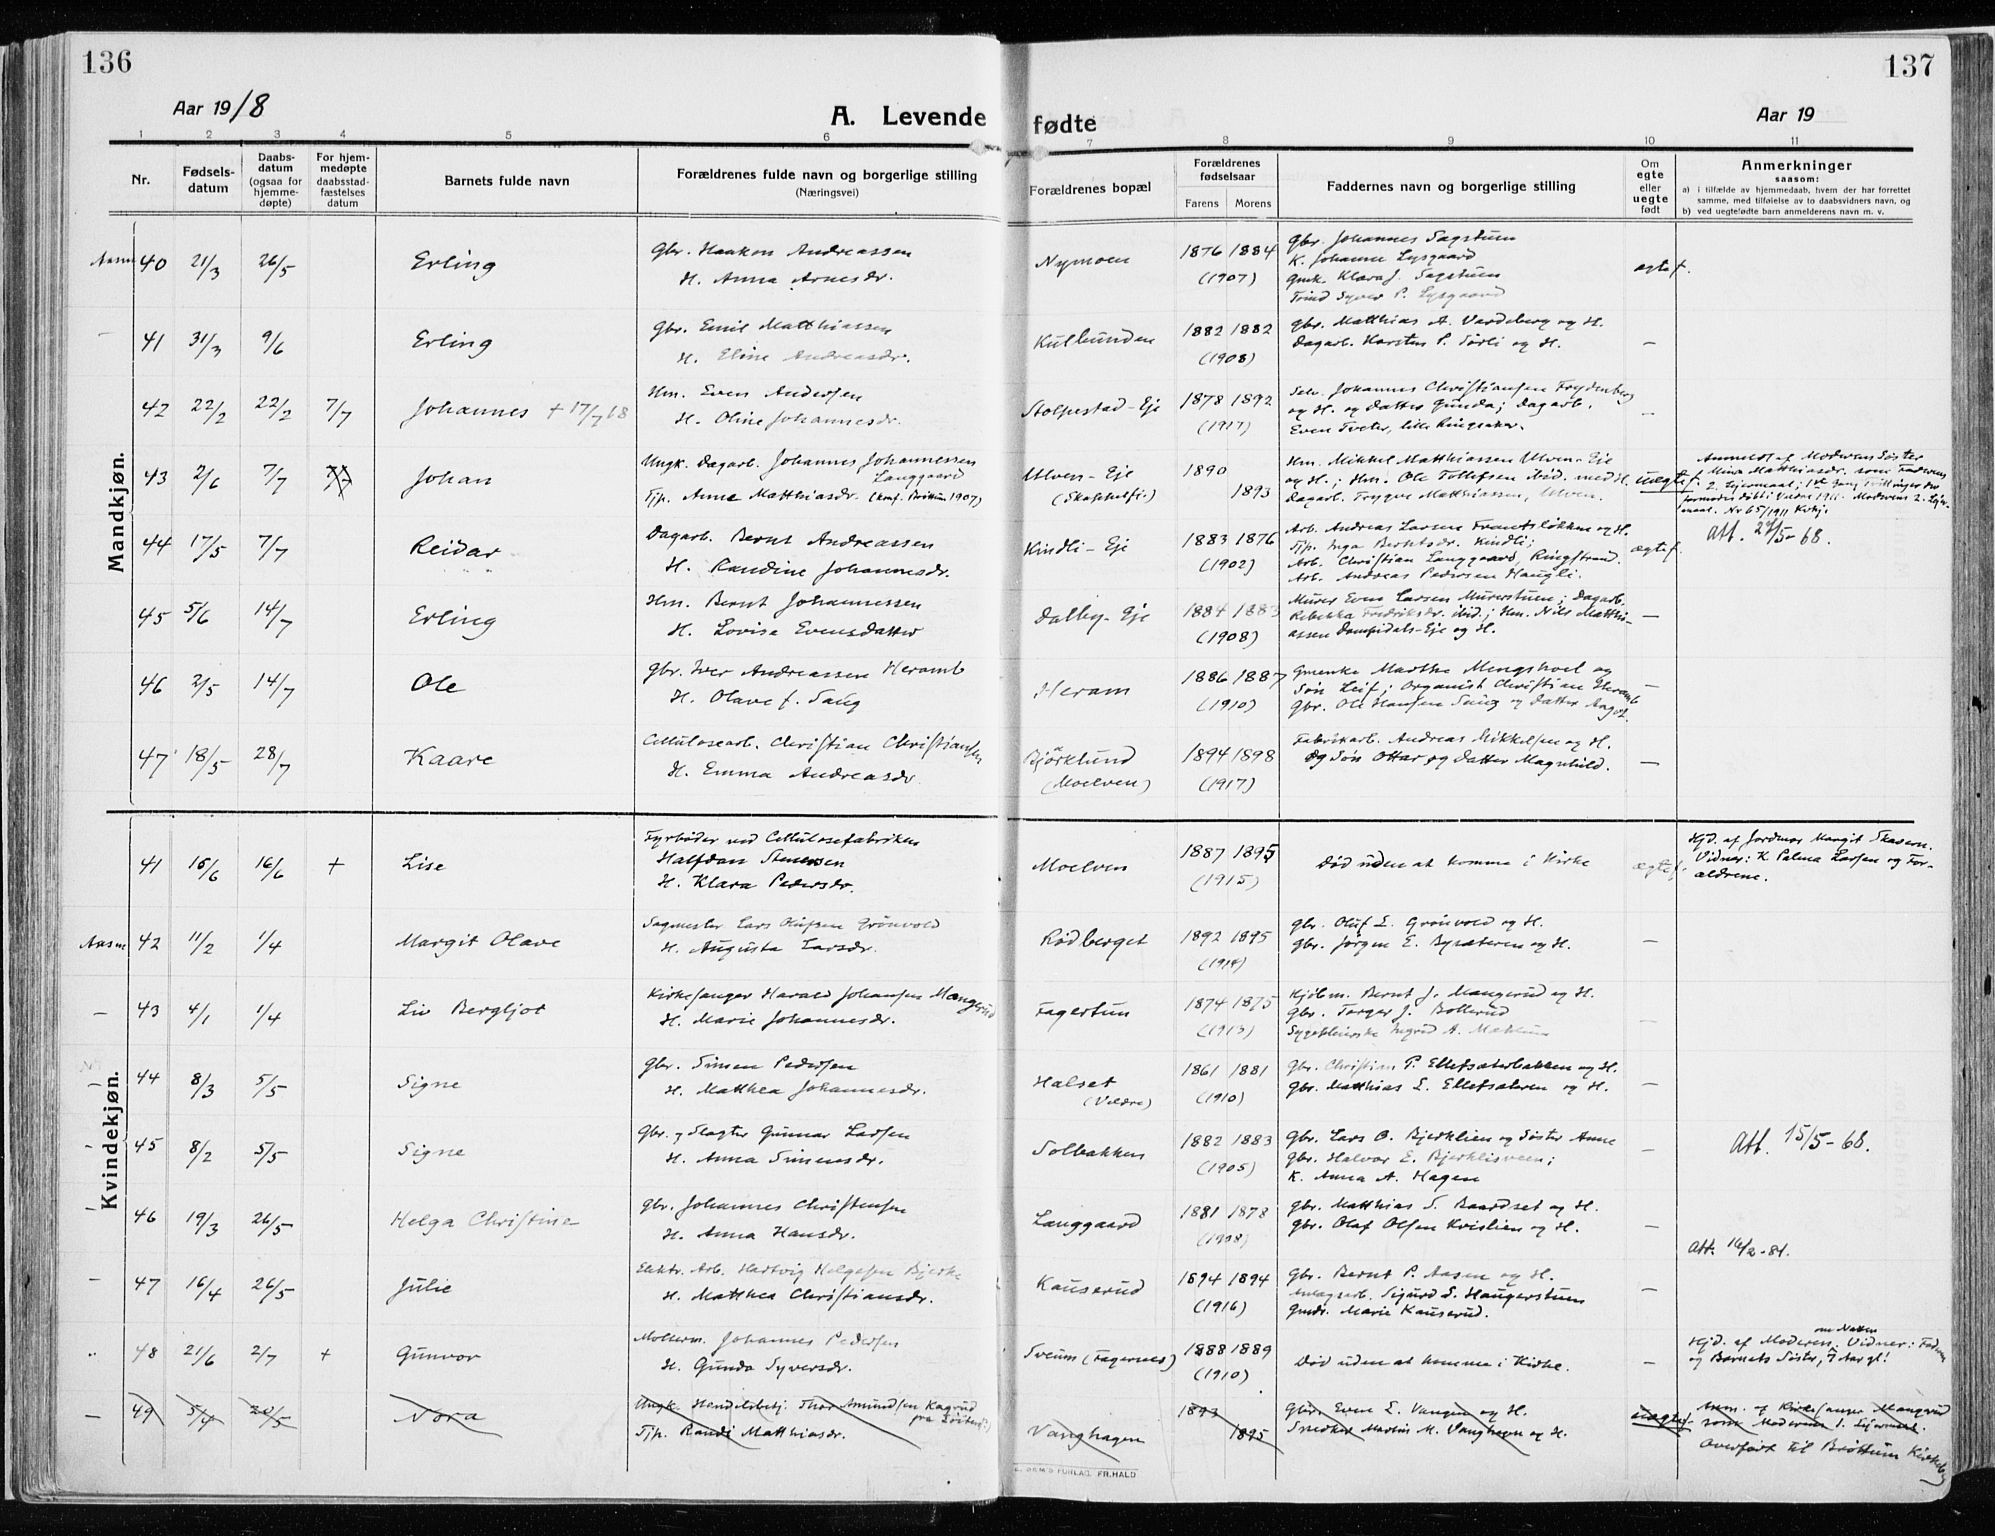 136
137
Aar 1918
A. Levende fødte
Aar 19
1 2 3 4 5 6 7 8 9 10 11
Nr.
Fødsels-
datum
Daabs-
datum
(ogsaa for
hjemme-
døpte)
For hjem-
medøpte
daabsstad-
fæstelses
datum
Barnets fulde navn
Forældrenes fulde navn og borgerlige stilling
(Næringsvei)
Forældrenes bopæl
Forældrenes
fødselsaar
Farens Morens
Faddernes navn og borgerlige stilling
Om
egte
eller
uegte
født
Anmerkninger
saasom:
a) i tilfælde av hjemmedaab, hvem der har forrettet
samme, med tilføielse av to daabsvidners navn, og
b) ved uegtefødte barn anmelderens navn m. v.
Mandkjøn.
40 21/3 26/5 Erling Gbr. Haakon Andreassen Nymoen 1876 1884 Gbr. Johannes Sagstuen ægtef.
H. Anna Arnesdr. (1907) K. Johanne Lysgaard
Gmk. Klara J. Sagstuen
Syver P. Lysgaard
41 31/3 9/6 Erling Gbr. Emil Matthiassen Kulbunden 1882 1882 Gbr. Matthias A. Vardeberg og H. —
H. Eline Andreasdr. (1908) Dagarb. Karsten P. Sørli og H.
42 22/2 22/2 7/7 Johannes + 17/7 18 Hm. Even Andersen Stolpestad-Eje 1878 1892 Selv. Johannes Christiansen Frydenberg —
H. Oline Johannesdr. (1917) og H. og Datter Gunda; Dagarb.
Even Tveter, lille Ringsaker.
43 2/6 7/7 7/7 Johan Ungk. Dagarb. Johannes Johannessen Langgaard Ulven-Eje 1890 Hm. Mikkel Matthiassen Ulven-Eje uægtef. Anmeldt af Moderens Søster
Tjp. Anne Matthiasdr. (konf. Brøttum 1907) 1893 og H.; Hm. Ole Tollefsen ibid. med H. Mina Matthiasdr. som Faderens
Dagarb. Trygve Matthiassen, Ulven. 2. Lejermaal; 1ste Gang Tvillinger der
formodes døbt i Veldre 1911. Moderens 2. Lejer-
maal. Nr 65/1911 Kvkj.
44 17/5 7/7 Reidar Dagarb. Bernt Andreassen Kindli-Eje 1883 1876 Arb. Andreas Larsen Frantsløkken og H. ægtef. Att. 24/5-68.
H. Randine Johannesdr. (1902) Tjp. Inga Berntsdr. Kindli;
Arb. Christian Langgaard, Ringstrand.
Arb. Andreas Pedersen Haugli.
45 5/6 14/7 Erling Hm. Bernt Johannessen Dalby-Eje 1884 1883 Murer Even Larsen Murerstuen; Dagarb. —
H. Lovise Evensdatter (1908) Rebekka Fredriksdr. ibid.; Hm. Nils Matthi-
assen Dampidals-Eje og H.
46 2/5 14/7 Ole Gbr. Iver Andreassen Heramb Heram 1886 1887 Gmenke Marthe Mengshoel og —
H. Olave f. Saug (1910) Søn Leif; Organist Christian Heramb
Gbr. Ole Hansen Saug og Datter Aagot.
47 18/5 28/7 Kaare Cellulosearb. Christian Christiansen Björklund 1894 1898 Fabrikarb. Andreas Mikkelsen og H. —
H. Emma Andreasdr. (Moelven) (1917) og Søn Ottar og Datter Magnhild.
Kvindekjøn.
41 15/6 16/6 + Lise Fyrbøder ved Cellulosefabriken Moelven 1887 1895 Død uden at komme i Kirke ægtef. Hjd. af Jordmor Margit Skavern.
Halfdan Stenersen (1915) Vidner: K Palma Larsen og For-
H. Klara Pedersdr. ældrene.
42 11/2 1/4 Margit Olave Sagmester Lars Olufsen Grönvold Rødberget 1892 1895 Gbr. Oluf L. Grönvold og H. —
H. Augusta Larsdr. (1914) Gbr. Jørgen E. Bysæteren og H.
— 43 4/1 1/4 Liv Bergljot Kirkesanger Harald Johansen Mangerud Fagertun 1874 1875 Kjøbm. Bernt J. Mangerud og H. —
H. Marie Johannesdr. (1913) Gbr. Torger J. Bollerud
Sygepleierske Ingrid A.
44 8/3 5/5 Signe Gbr. Simen Pedersen Halset 1861 1881 Gbr. Christian P. Ellefsæterbakken og H. —
H. Matthea Johannesdr. (Veldre) (1910) Gbr. Matthias L. Ellefsæteren og H.
45 8/2 5/5 Signe Gbr. og Slagter Gunnar Larsen Solbakken 1882 1883 Gbr. Lars O. Bjerklien og Søster Anne — Att. 15/5-68.
H. Anna Simensdr. (1905) Gbr. Halvor E. Bjerklisveen;
K. Anna A. Hagen
46 19/3 26/5 Helga Christine Gbr. Johannes Christensen Langgaard 1881 1878 Gbr. Matthias S. Baardset og H. —
H. Anna Hansdr. (1908) Gbr. Olaf Olsen Kvislien og H. Att. 16/2-81.
47 16/4 26/5 Julie Elektr. Arb. Hartvig Helgesen Bjerke Kauserud 1894 1894 Gbr. Bernt P. Aasen og H. —
H. Matthea Christiansdr. (1916) Anlægsarb. Sigurd S. Haugerstuen
Gmdr. Marie Kauserud.
48 21/6 2/7 + Gunvor Møllerm. Johannes Pedersen Sveum (Fagernes) 1888 1889 Død uden at komme i Kirke. — Hjd. af Moderen om Natten. Vidner: Faderen
H. Gunda Syversdr. (1910) og Barnets Søster, 7 Aar gl!
— 49 5/4 20/5 Nora Ungk. Handelsbetj. Thor Amundsen Kagrud Vanghagen 1893 Gbr. Even L. Vangen og H. uægtef. Anm. af Kirkesanger Mangerud
Tjp. Randi Matthiasdr. 1895 Snedker Martin M. Vanghagen og H. som Moderens 1. Lejermaal.
Overført til Brøttum Kirkebog
FORLAG, FR. HALD